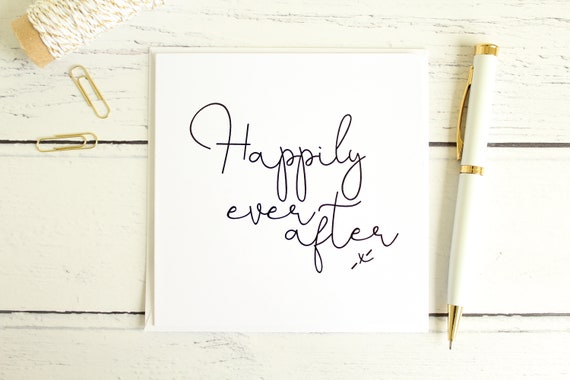 Happily
ever
after
-x-